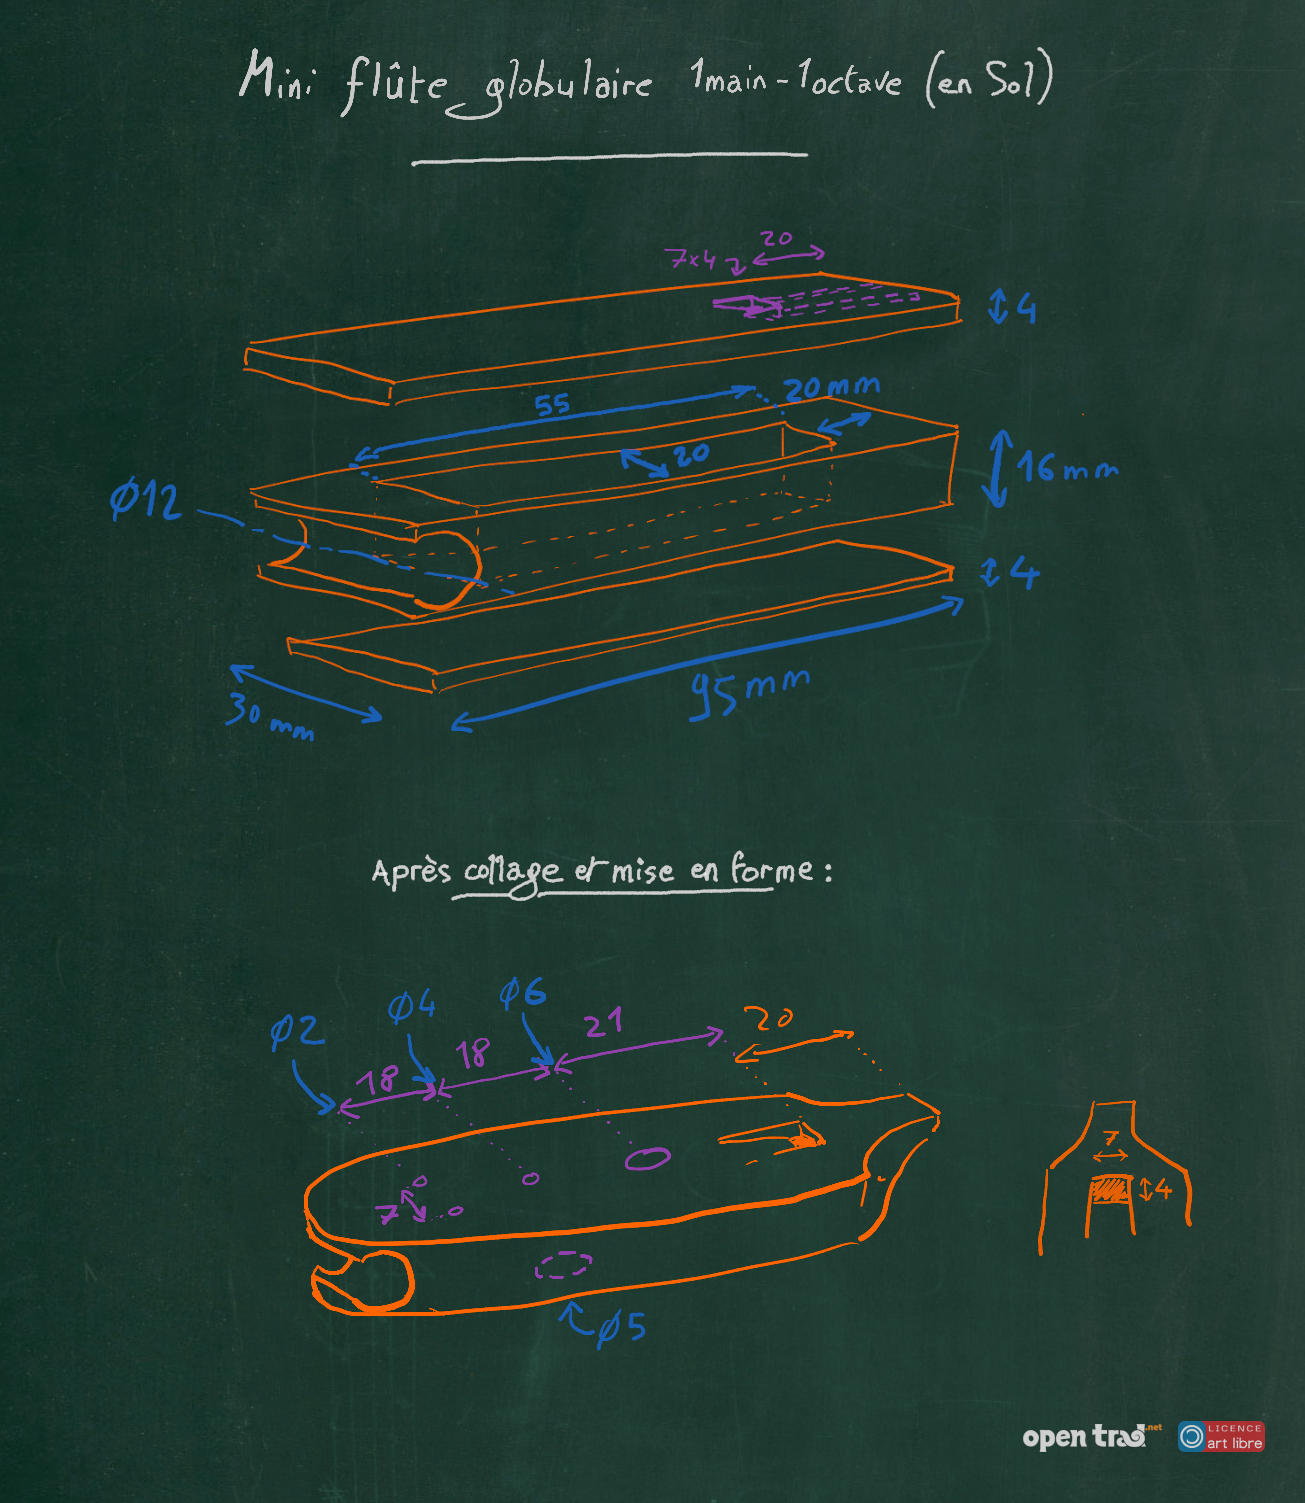 Mini flûte globulaire 1main-1octave (en Sol)
20
7x4
4
55
20mm
20
Ø12
16mm
4
30mm
95mm
Après collage et mise en forme :
Ø2
Ø4
Ø6
18
18
21
20
7
7
4
Ø5
open trad.net
LICENCE
art libre